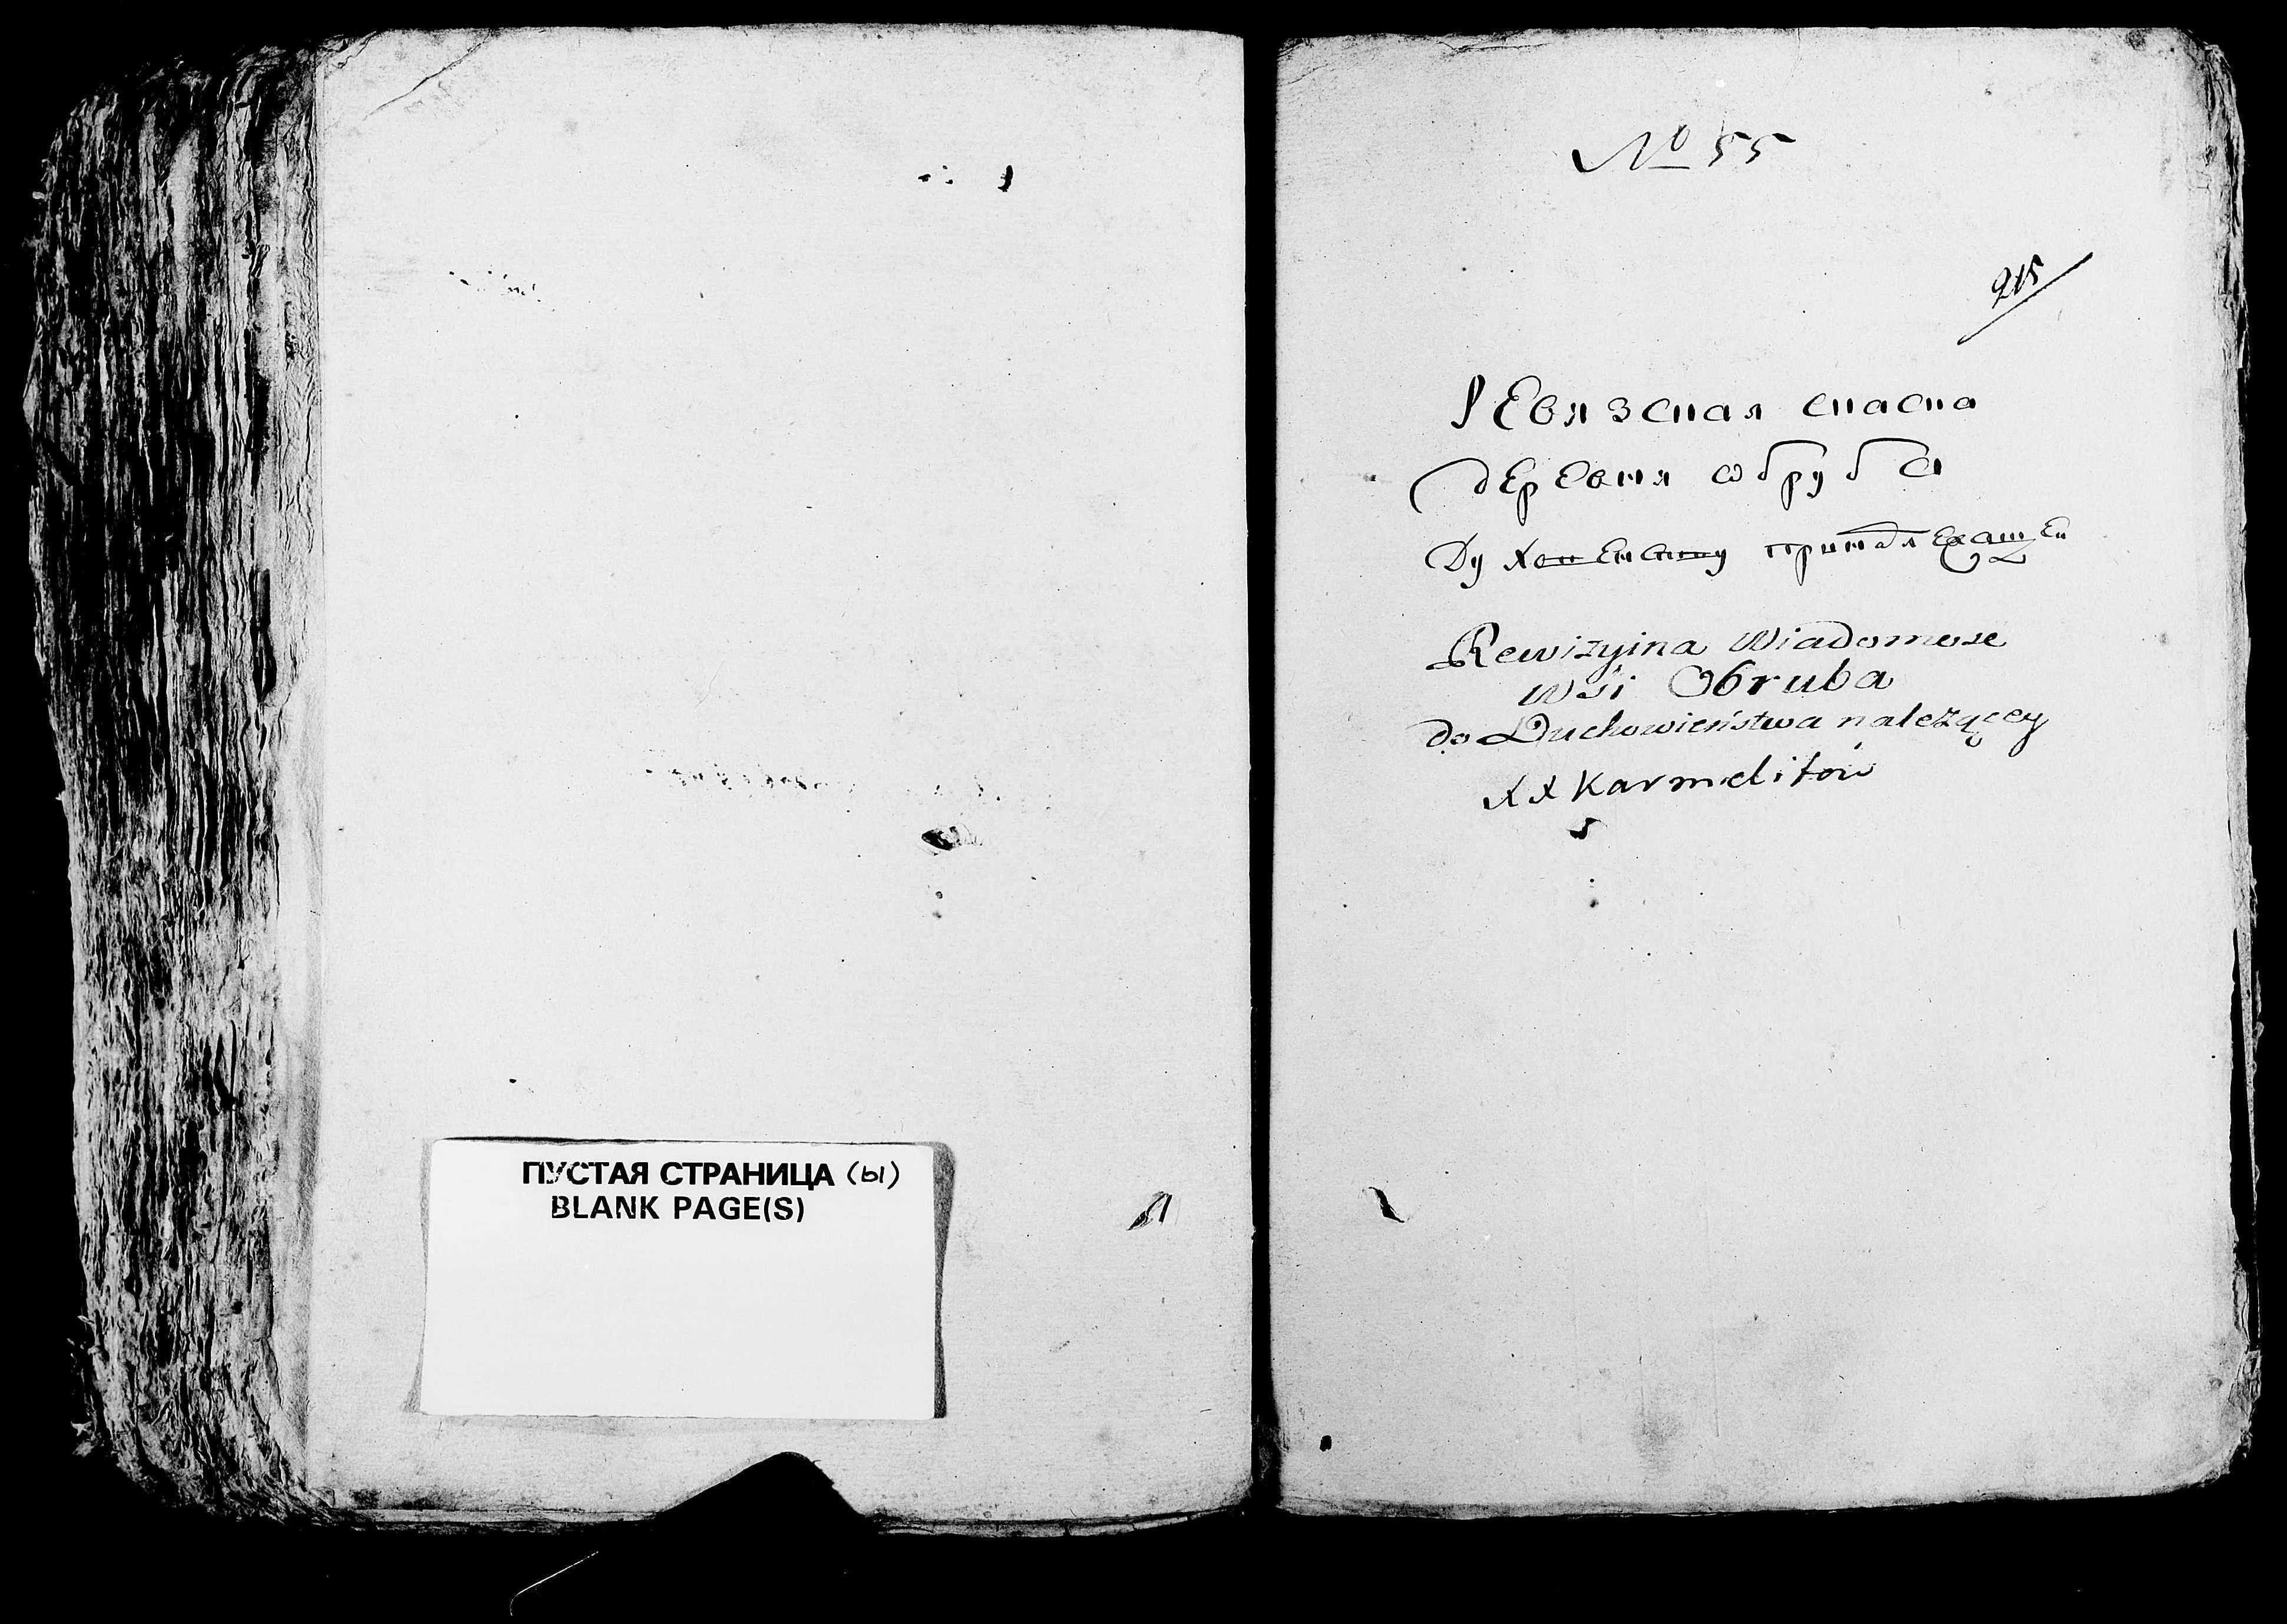 ПУСТАЯ СТРАНИЦА (ы)
BLANK PAGE(S)
No 55
215
Ревизская сказка
деревня обруба
Ду Хов енсну принадлежащеи
Rewizyina Wiadomosc
wsi Obruba
do Duchowieństwa należącey
XX Karmelitow